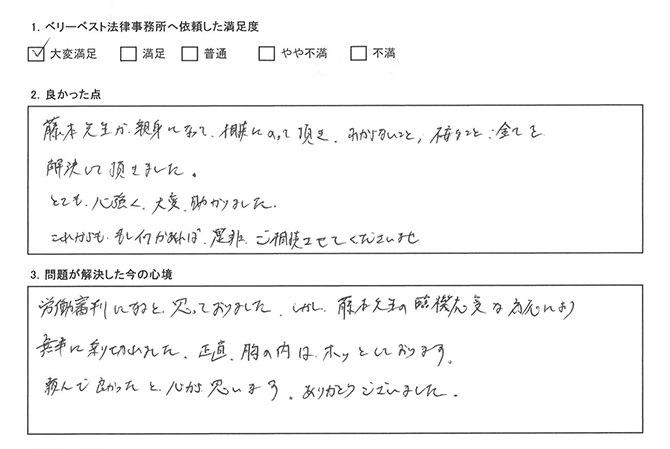 1. ベリーベスト法律事務所へ依頼した満足度
大変満足 満足 普通 やや不満 不満
2. 良かった点
藤本先生が、親身になって、相談にのって頂き、わからないこと、 こと、全てを
解決して頂きました。
とても、心強く、大変、助かりました。
これからも、もし何かあれば、是非、ご相談させてくださいませ
3. 問題が解決した今の心境
労働審判になると、思っておりました、しかし、藤本先生の臨機応変な対応により
無事に乗り切れました、正直、胸の内は、ホッとしております。
頼んで良かったと、心から思います。ありがとうございました。